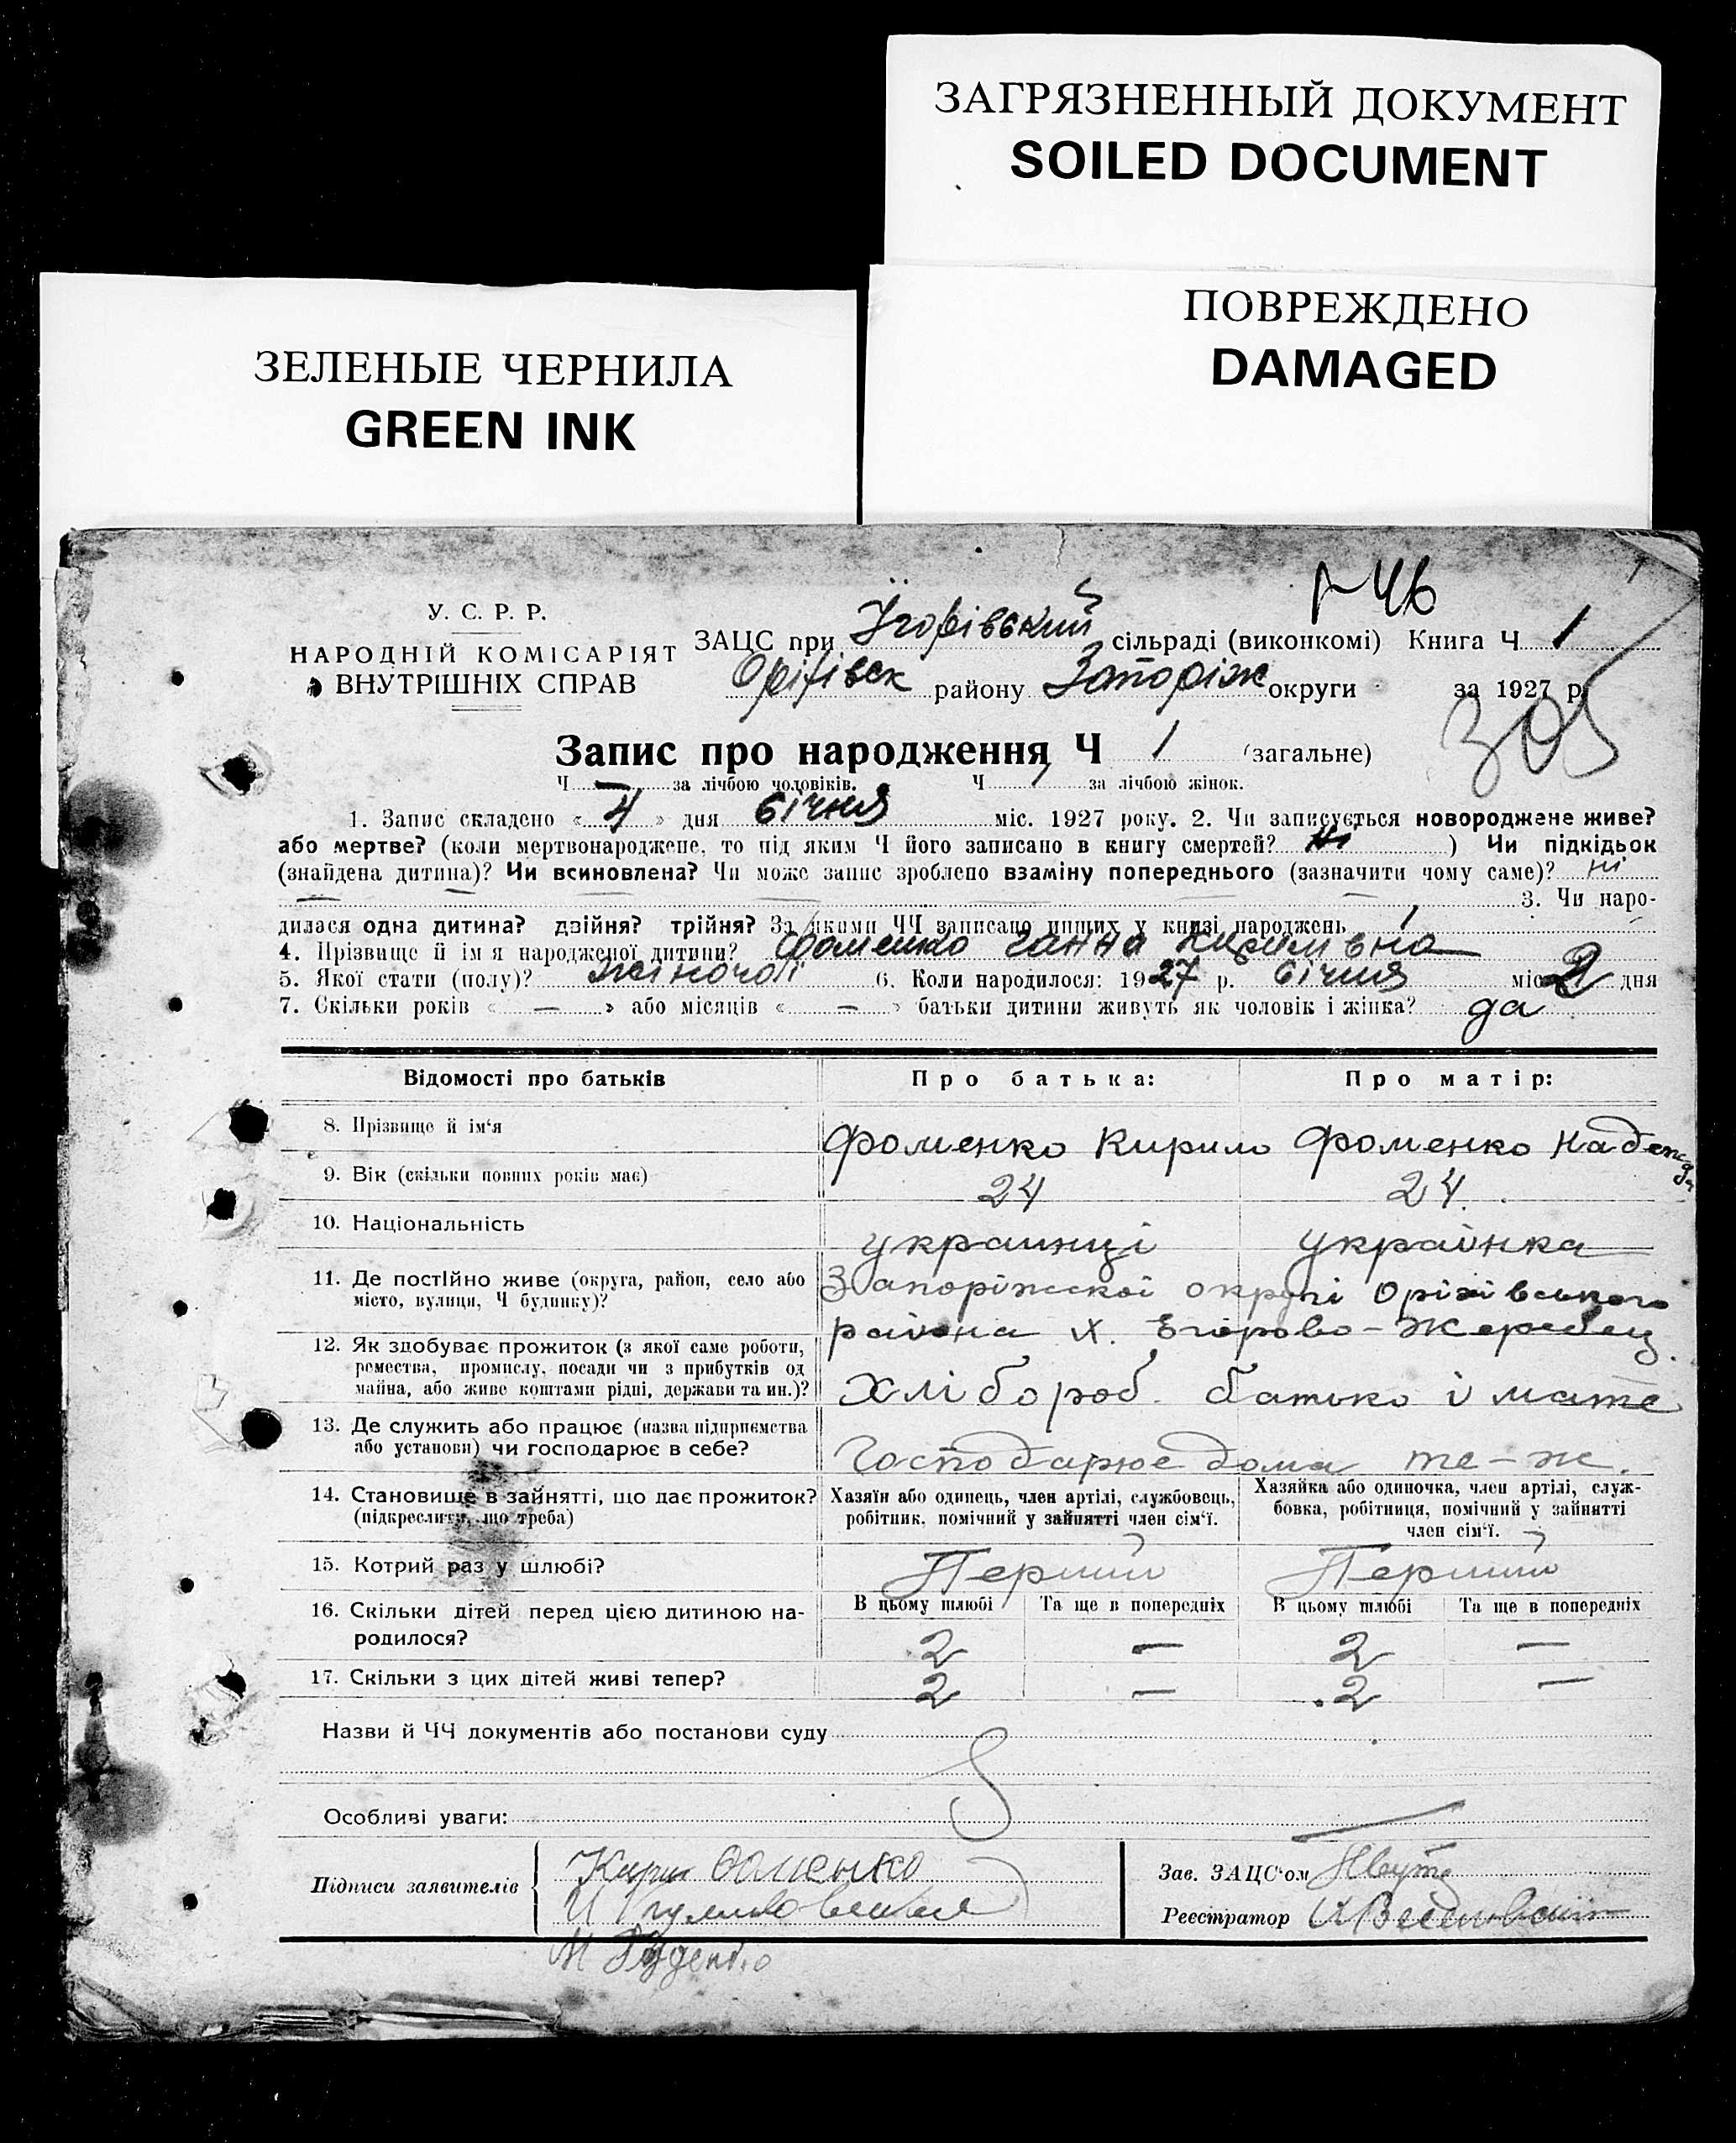 ЗАГРЯЗНЕННЫЙ ДОКУМЕНТ
SOILED DOCUMENT
ПОВРЕЖДЕНО
DAMAGED
ЗЕЛЕНЫЕ ЧЕРНИЛА
GREEN INK
У. С. Р. Р.
НАРОДНІЙ КОМІСАРІЯТ
ВНУТРІШНІХ СПРАВ
ЗАЦС при сільраді (виконкомі) Книга Ч 1
району Запоріж округи за 1927 р.
305
Запис про народження Ч 1 (загальне)
Ч — за лічбою чоловіків. Ч 1 за лічбою жінок.
1. Запис складено « 4 » дня січня міс. 1927 року. 2. Чи записується новороджене живе?
або мертве? (коли мертвонароджене, то під яким Ч його записано в книгу смертей? ні ) Чи підкідьок
(знайдена дитина)? Чи всиновлена? Чи може запис зроблено взаміну попереднього (зазначити чому саме)? ні
— — — — — — 3. Чи наро-
дилася одна дитина? двійня? трійня? За якими ЧЧ записано инших у книзі народжень 1
4. Прізвище й ім'я народженої дитини? Фоменко Ганна Кирилівна
5. Якої стати (полу)? жіночої 6. Коли народилося: 1927 р. січня міс. 2 дня
7. Скільки років « — » або місяців « — » батьки дитини живуть як чоловік і жінка? да
Відомості про батьків Про батька: Про матір:
8. Прізвище й ім'я Фоменко Кирило Фоменко Надежда
9. Вік (скільки повних років має) 24 24
10. Національність украинці українка
11. Де постійно живе (округа, район, село або
місто, вулиця, Ч будинку)? Запоріжскої округі Оріхівського
района х. Егорово-Жеребец.
12. Як здобуває прожиток (з якої саме роботи,
ремества, промислу, посади чи з прибутків од
майна, або живе коштами рідні, держави та ин.)? Хлібороб. батько і мате
13. Де служить або працює (назва підприємства
або установи) чи господарює в себе? Господарює дома те-ж.
14. Становище в зайнятті, що дає прожиток?
(підкреслити, що треба)
Хазяїн або одинець, член артілі, службовець,
робітник, помічний у зайнятті член сім'ї.
Хазяйка або одиночка, член артілі, служ-
бовка, робітниця, помічний у зайнятті
член сім'ї.
15. Котрий раз у шлюбі? Перший Перший
16. Скільки дітей перед цією дитиною на-
родилося?
В цьому шлюбі Та ще в попередніх В цьому шлюбі Та ще в попередніх
2 — 2 —
17. Скільки з цих дітей живі тепер? 2 — 2 —
Назви й ЧЧ документів або постанови суду
Особливі уваги:
Підписи заявителів
Зав. ЗАЦС'ом
Реєстратор